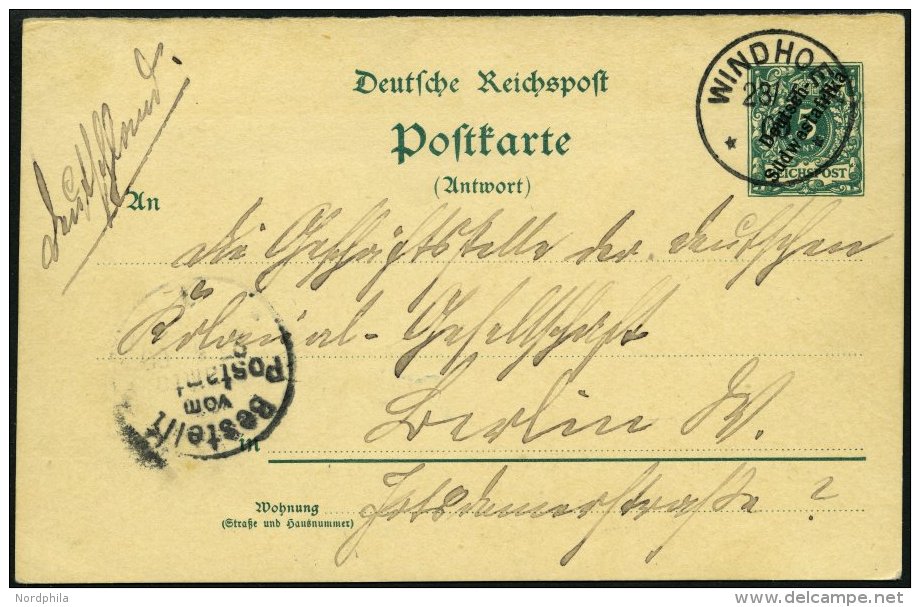 Deutschland.
Deutsche Reichspost
Postkarte
(Antwort)
WINDHOEK
28/
5
Deutsch-
Südwestafrika
REICHSPOST
An
die Geschäftsstelle der deutschen
Kolonial-Gesellschaft
Bestellt
vom
Postamt
in
Berlin W.
Wohnung
(Straße und Hausnummer)
Potsdamerstraße ?
Nordphila
delcampe.net